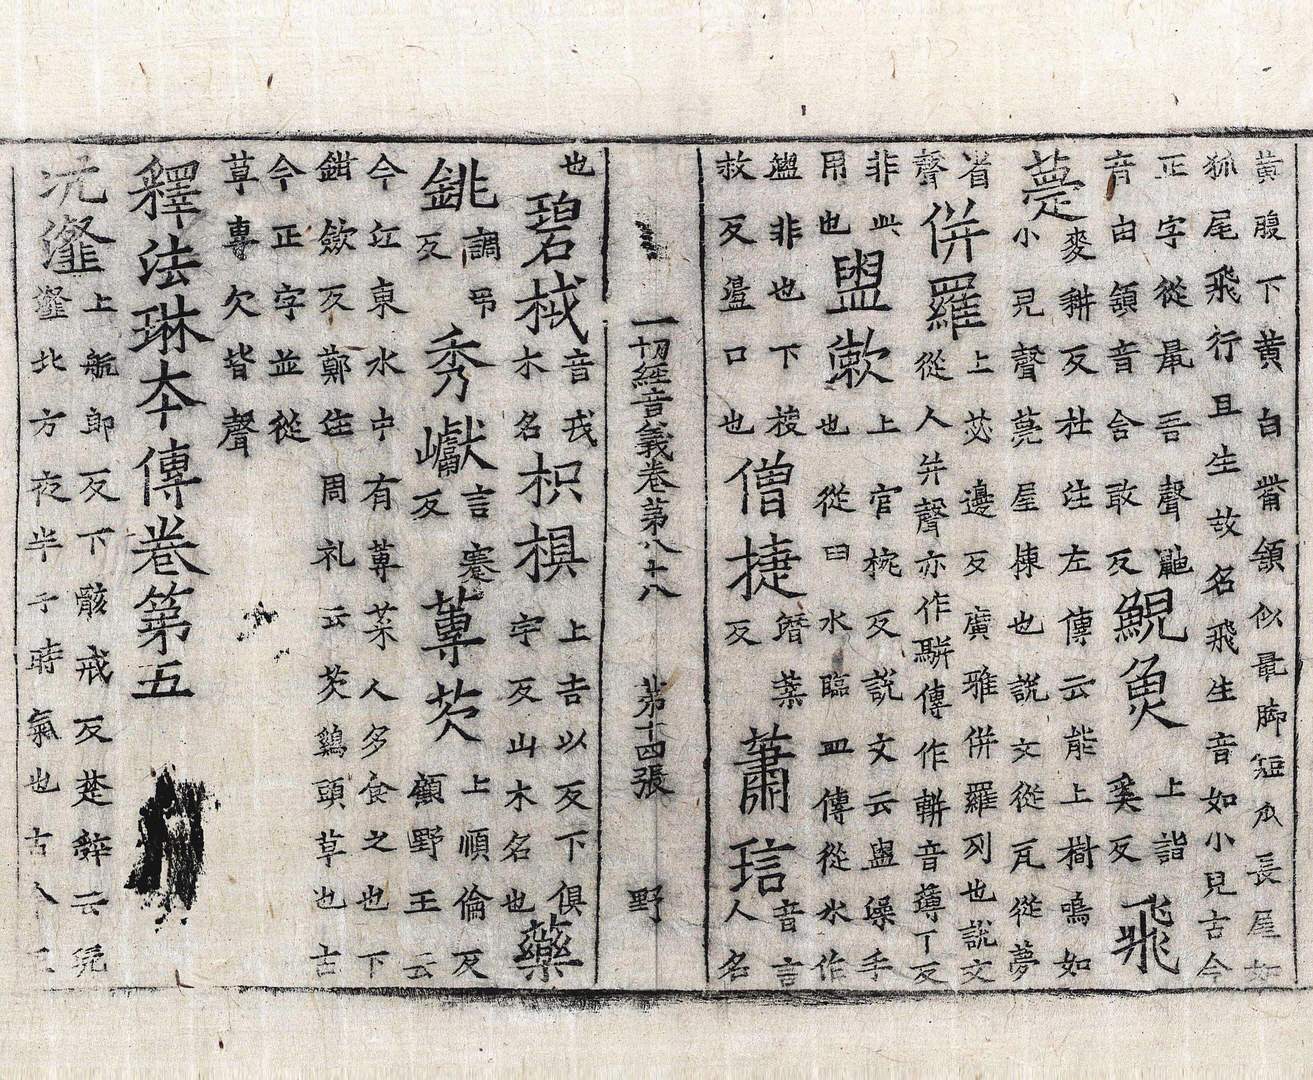 黃腹下黃白觜頷似鼠脚短爪長尾如
狐尾飛行且生故名飛生音如小兒古今
正字從鼠吾聲鼬
音由頷音含敢反
鯢魚上詣奚反飛
甍麥耕反杜注左傳云能上樹鳴如
小兒聲甍屋棟也說文從瓦從夢
省聲併羅上苾邊反廣雅併羅列也說文
從人并聲亦作駢傳作輧音薄丁反
非此用也盥漱上官椀反說文云盥澡手
也從臼水臨皿傳從水作
盥非也下
救反盪口也僧捷葉反蕭琂音言人名
一切經音義卷第八十八 第十四張 野
也碧棫音戎木名枳椇上吉以反下俱宇反山木名也藥
銚調弔反秀巘言蹇反蓴芡上順倫反顧野王云
今江東水中有蓴菜人多食之也下
鉗斂反鄭注周礼云芡鷄頭草也古
今正字並從
草專欠皆聲
釋法琳本傳卷第五
沆瀣上航郎反下骸戒反楚辭云沆
瀣北方夜半子時氣也古今正